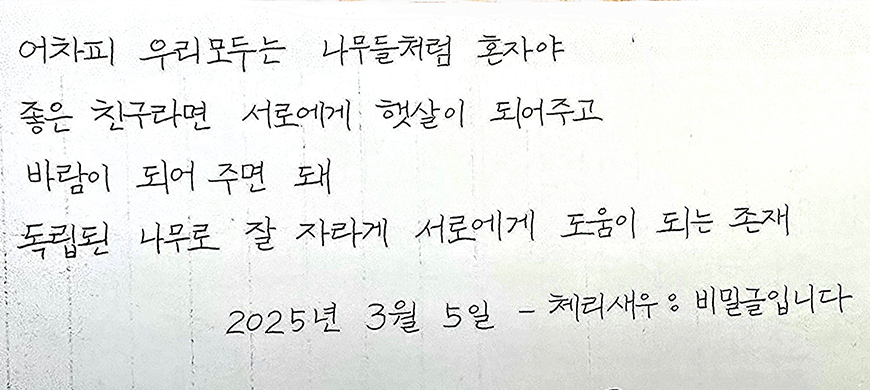 어차피 우리모두는 나무들처럼 혼자야
좋은 친구라면 서로에게 햇살이 되어주고
바람이 되어 주면 돼
독립된 나무로 잘 자라게 서로에게 도움이 되는 존재
2025년 3월 5일 - 체리새우: 비밀글입니다